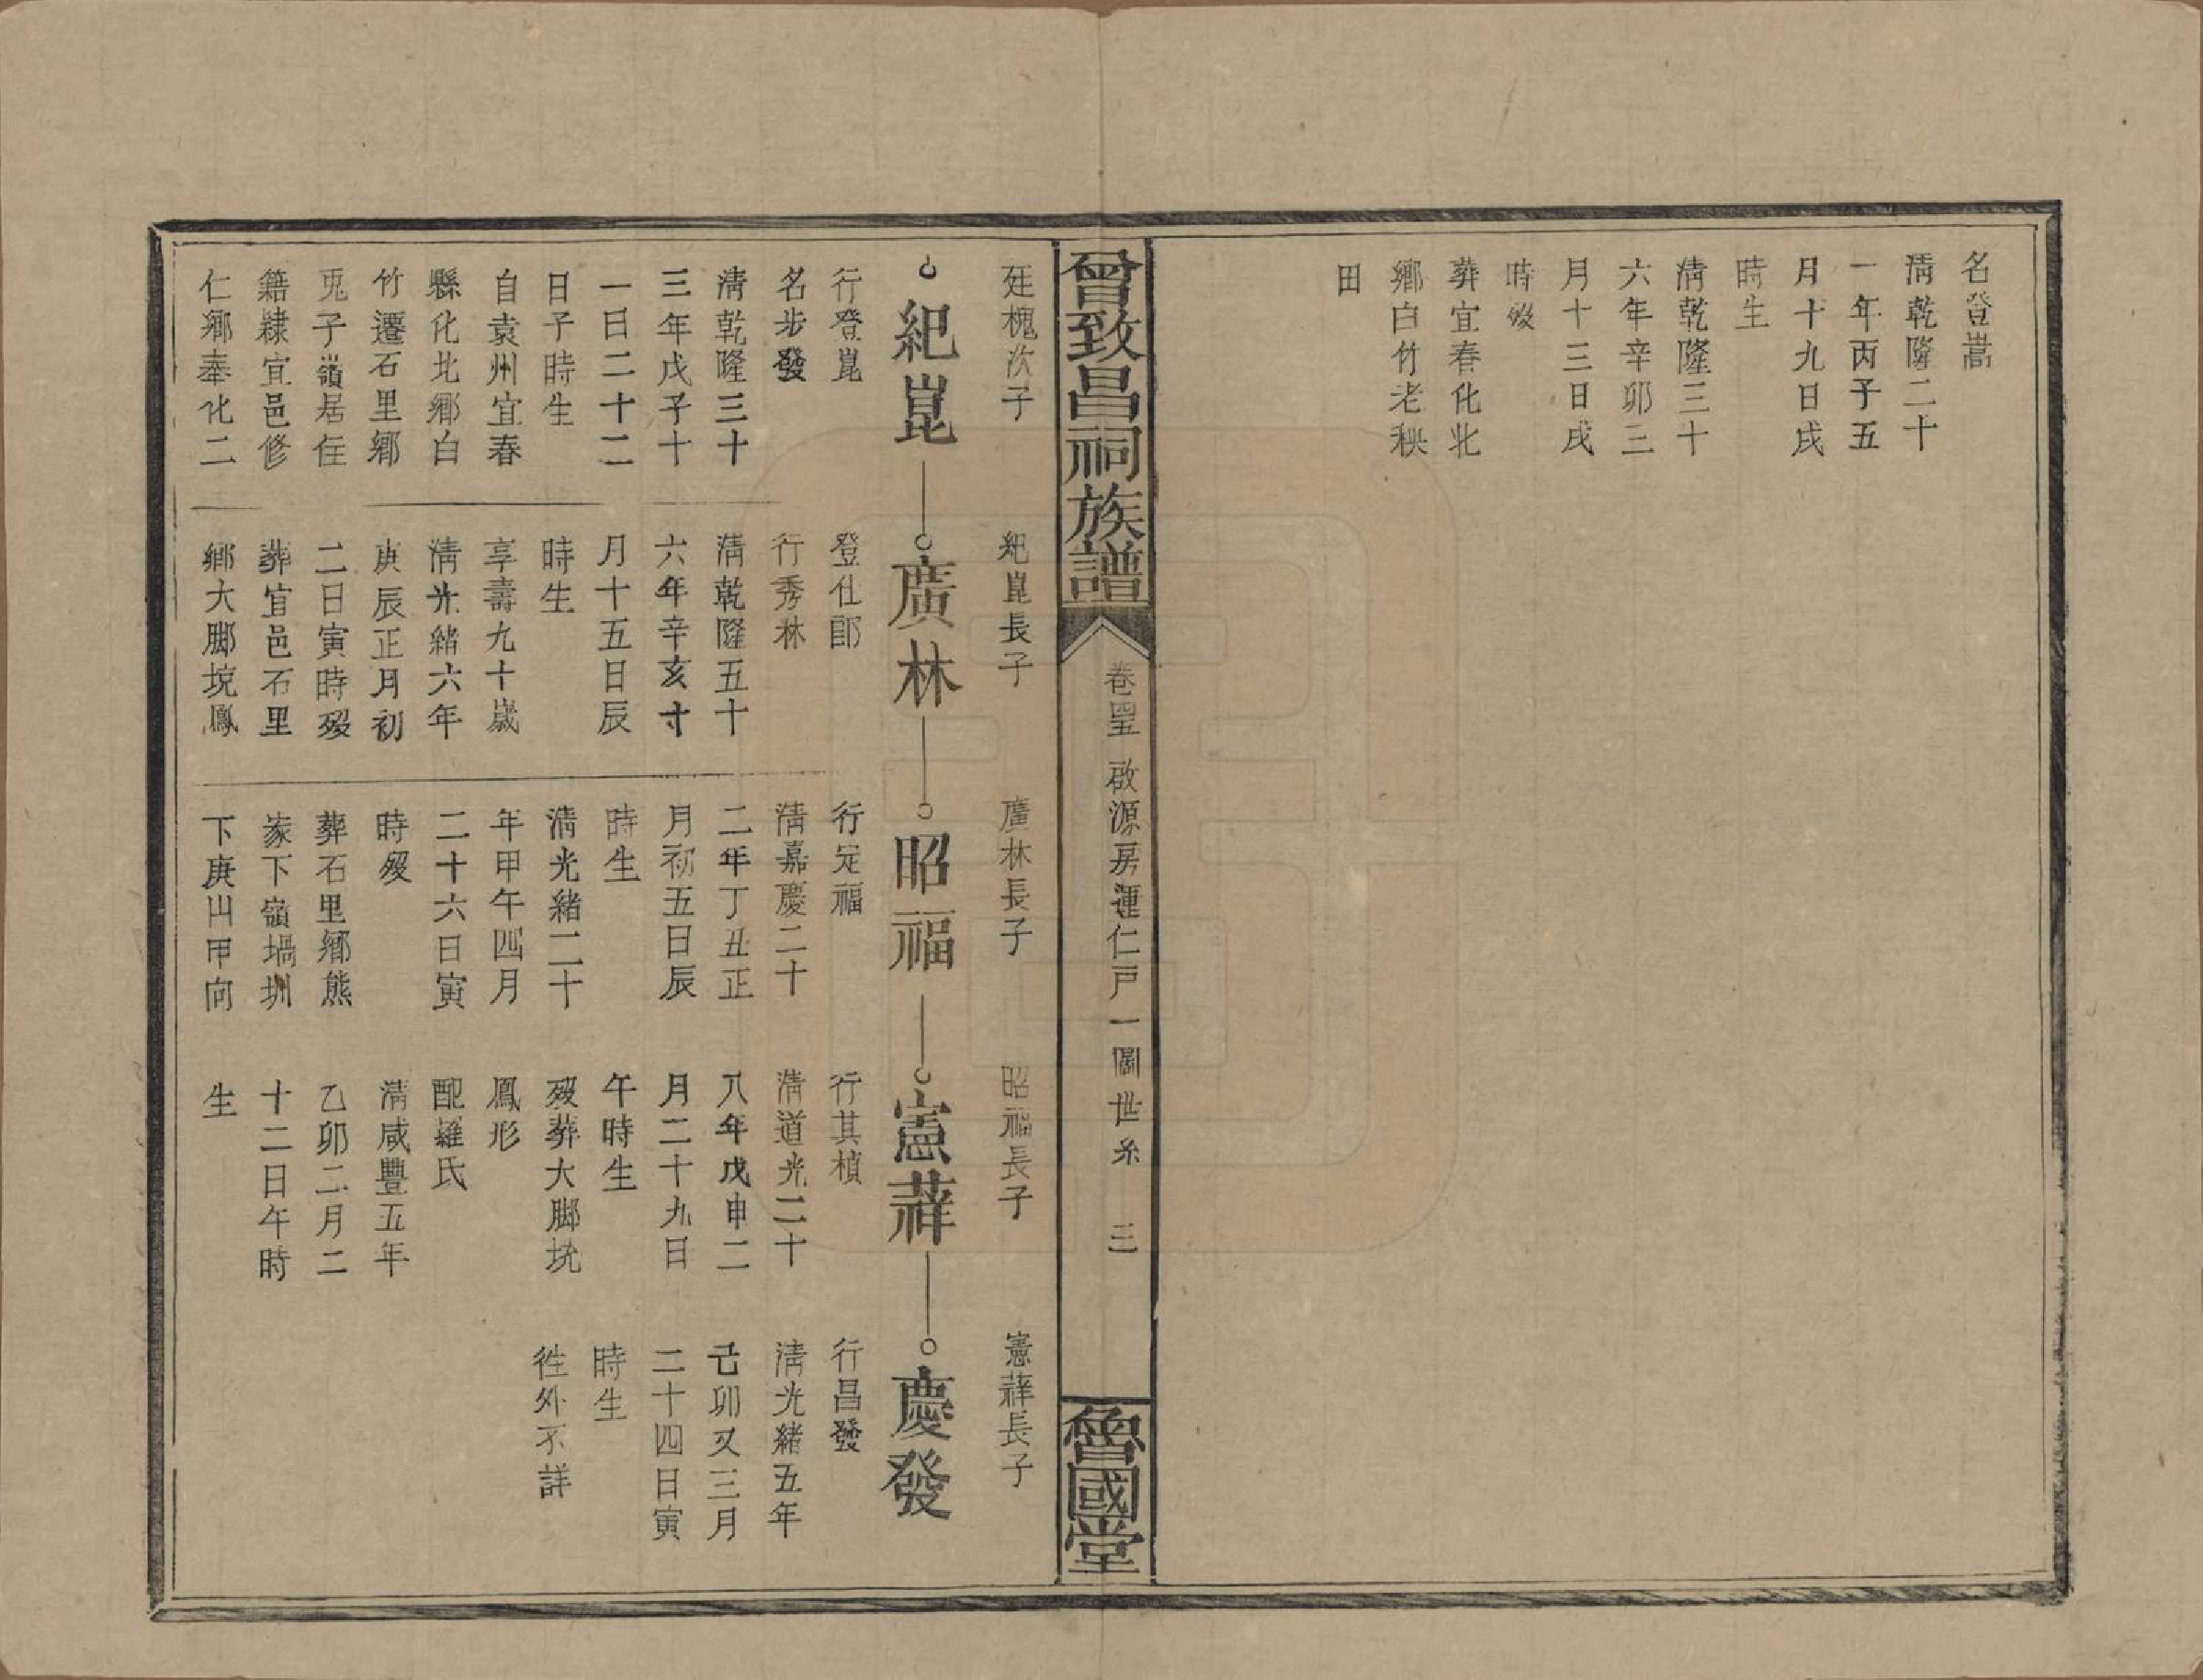 名登嵩
清乾隆二十
一年丙子五
月十九日戌
時生
清乾隆三十
六年辛卯三
月十三日戌
時歿
葬宜春化北
鄉白竹老秧
田
曾致昌祠族譜
卷四五 啟源房運仁戸一圖世系 三
魯國堂
廷槐次子
紀崑
行登崑
名步發
清乾隆三十
三年戊子十
一日二十二
日子時生
自袁州宜春
縣化北鄉白
竹遷石里鄉
兎子嶺居住
籍隸宜邑修
仁鄉奉化二
紀崑長子
廣林
登仕郎
行秀林
清乾隆五十
六年辛亥十
月十五日辰
時生
享壽九十歲
清光緒六年
庚辰正月初
二日寅時歿
葬宜邑石里
鄉大脚坑鳳
廣林長子
昭福
行定福
清嘉慶二十
二年丁丑正
月初五日辰
時生
清光緒二十
年甲午四月
二十六日寅
時歿
葬石里鄉熊
家下嶺堝圳
下庚山甲向
昭福長子
憲蘚
行其楨
清道光二十
八年戊申二
月二十九日
午時生
歿葬大脚坑
鳳形
配羅氏
清咸豐五年
乙卯二月二
十二日午時
生
憲蘚長子
慶發
行昌發
清光緒五年
己卯又三月
二十四日寅
時生
徃外不詳